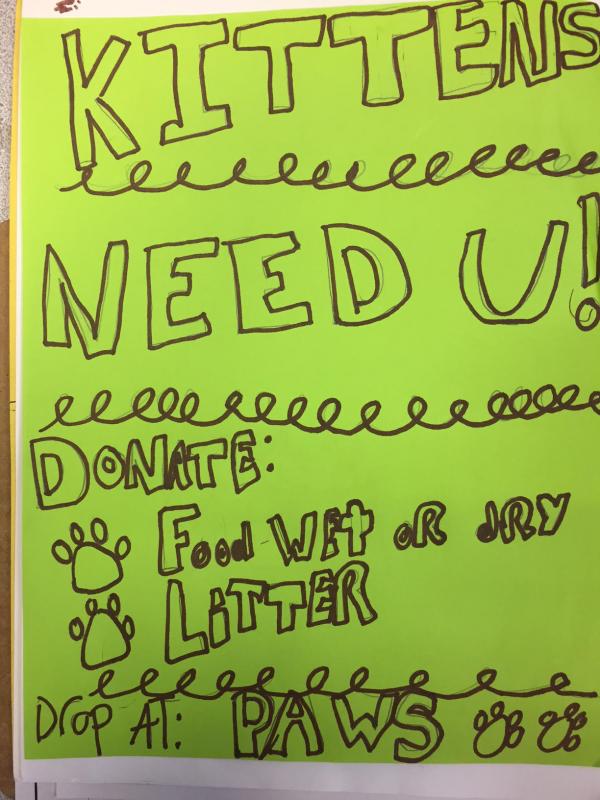 KITTENS
NEED U!
DONATE:
Food WEt oR dRY
LiTTER
Drop AT: PAWS